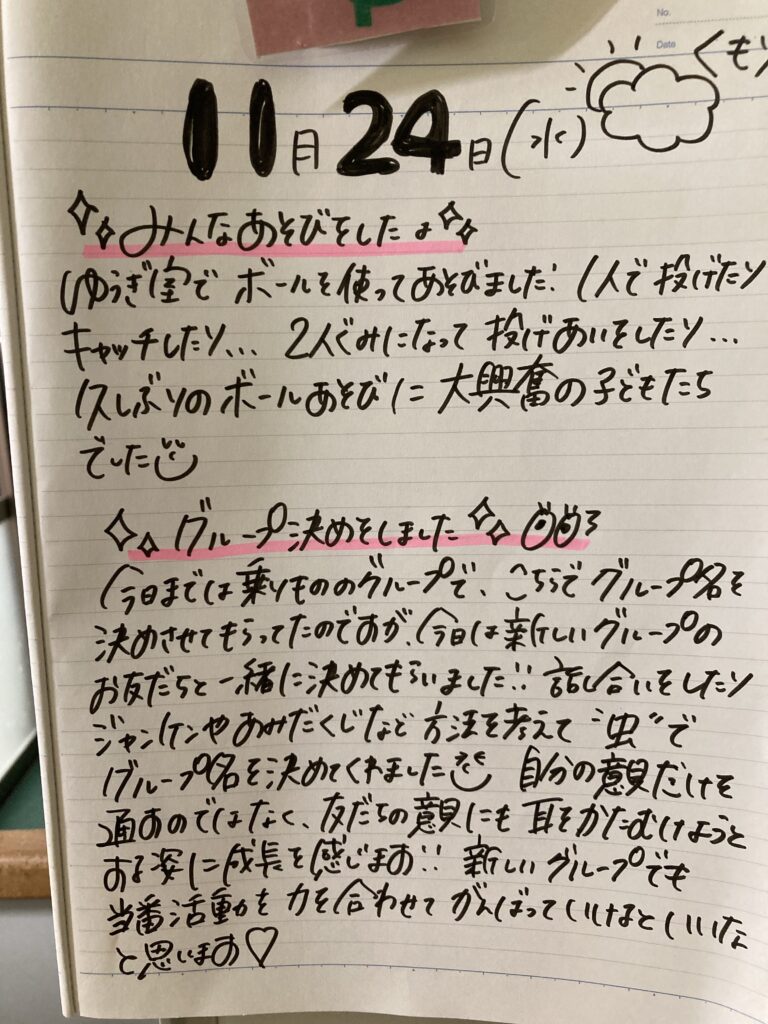 No.
Date
11月24日(水) くもり
みんなあそびをしたよ
ゆうぎ室で ボールを使ってあそびました! 1人で投げたり
キャッチしたり... 2人ぐみになって 投げあいをしたり...
久しぶりのボールあそびに 大興奮の子どもたち
でした
グループ決めをしました
今日までは乗りもののグループで、こちらでグループ名を
決めさせてもらってたのですが、今日は新しいグループの
お友だちと一緒に決めてもらいました!! 話し合いをしたり
ジャンケンやあみだくじなど 方法を考えて "虫"で
グループ名を決めてくれました 自分の意見だけを
通すのではなく、友だちの意見にも 耳をかたむけようと
する姿に成長を感じます!! 新しいグループでも
当番活動を 力を合わせて がんばっていけるといいな
と思います♡